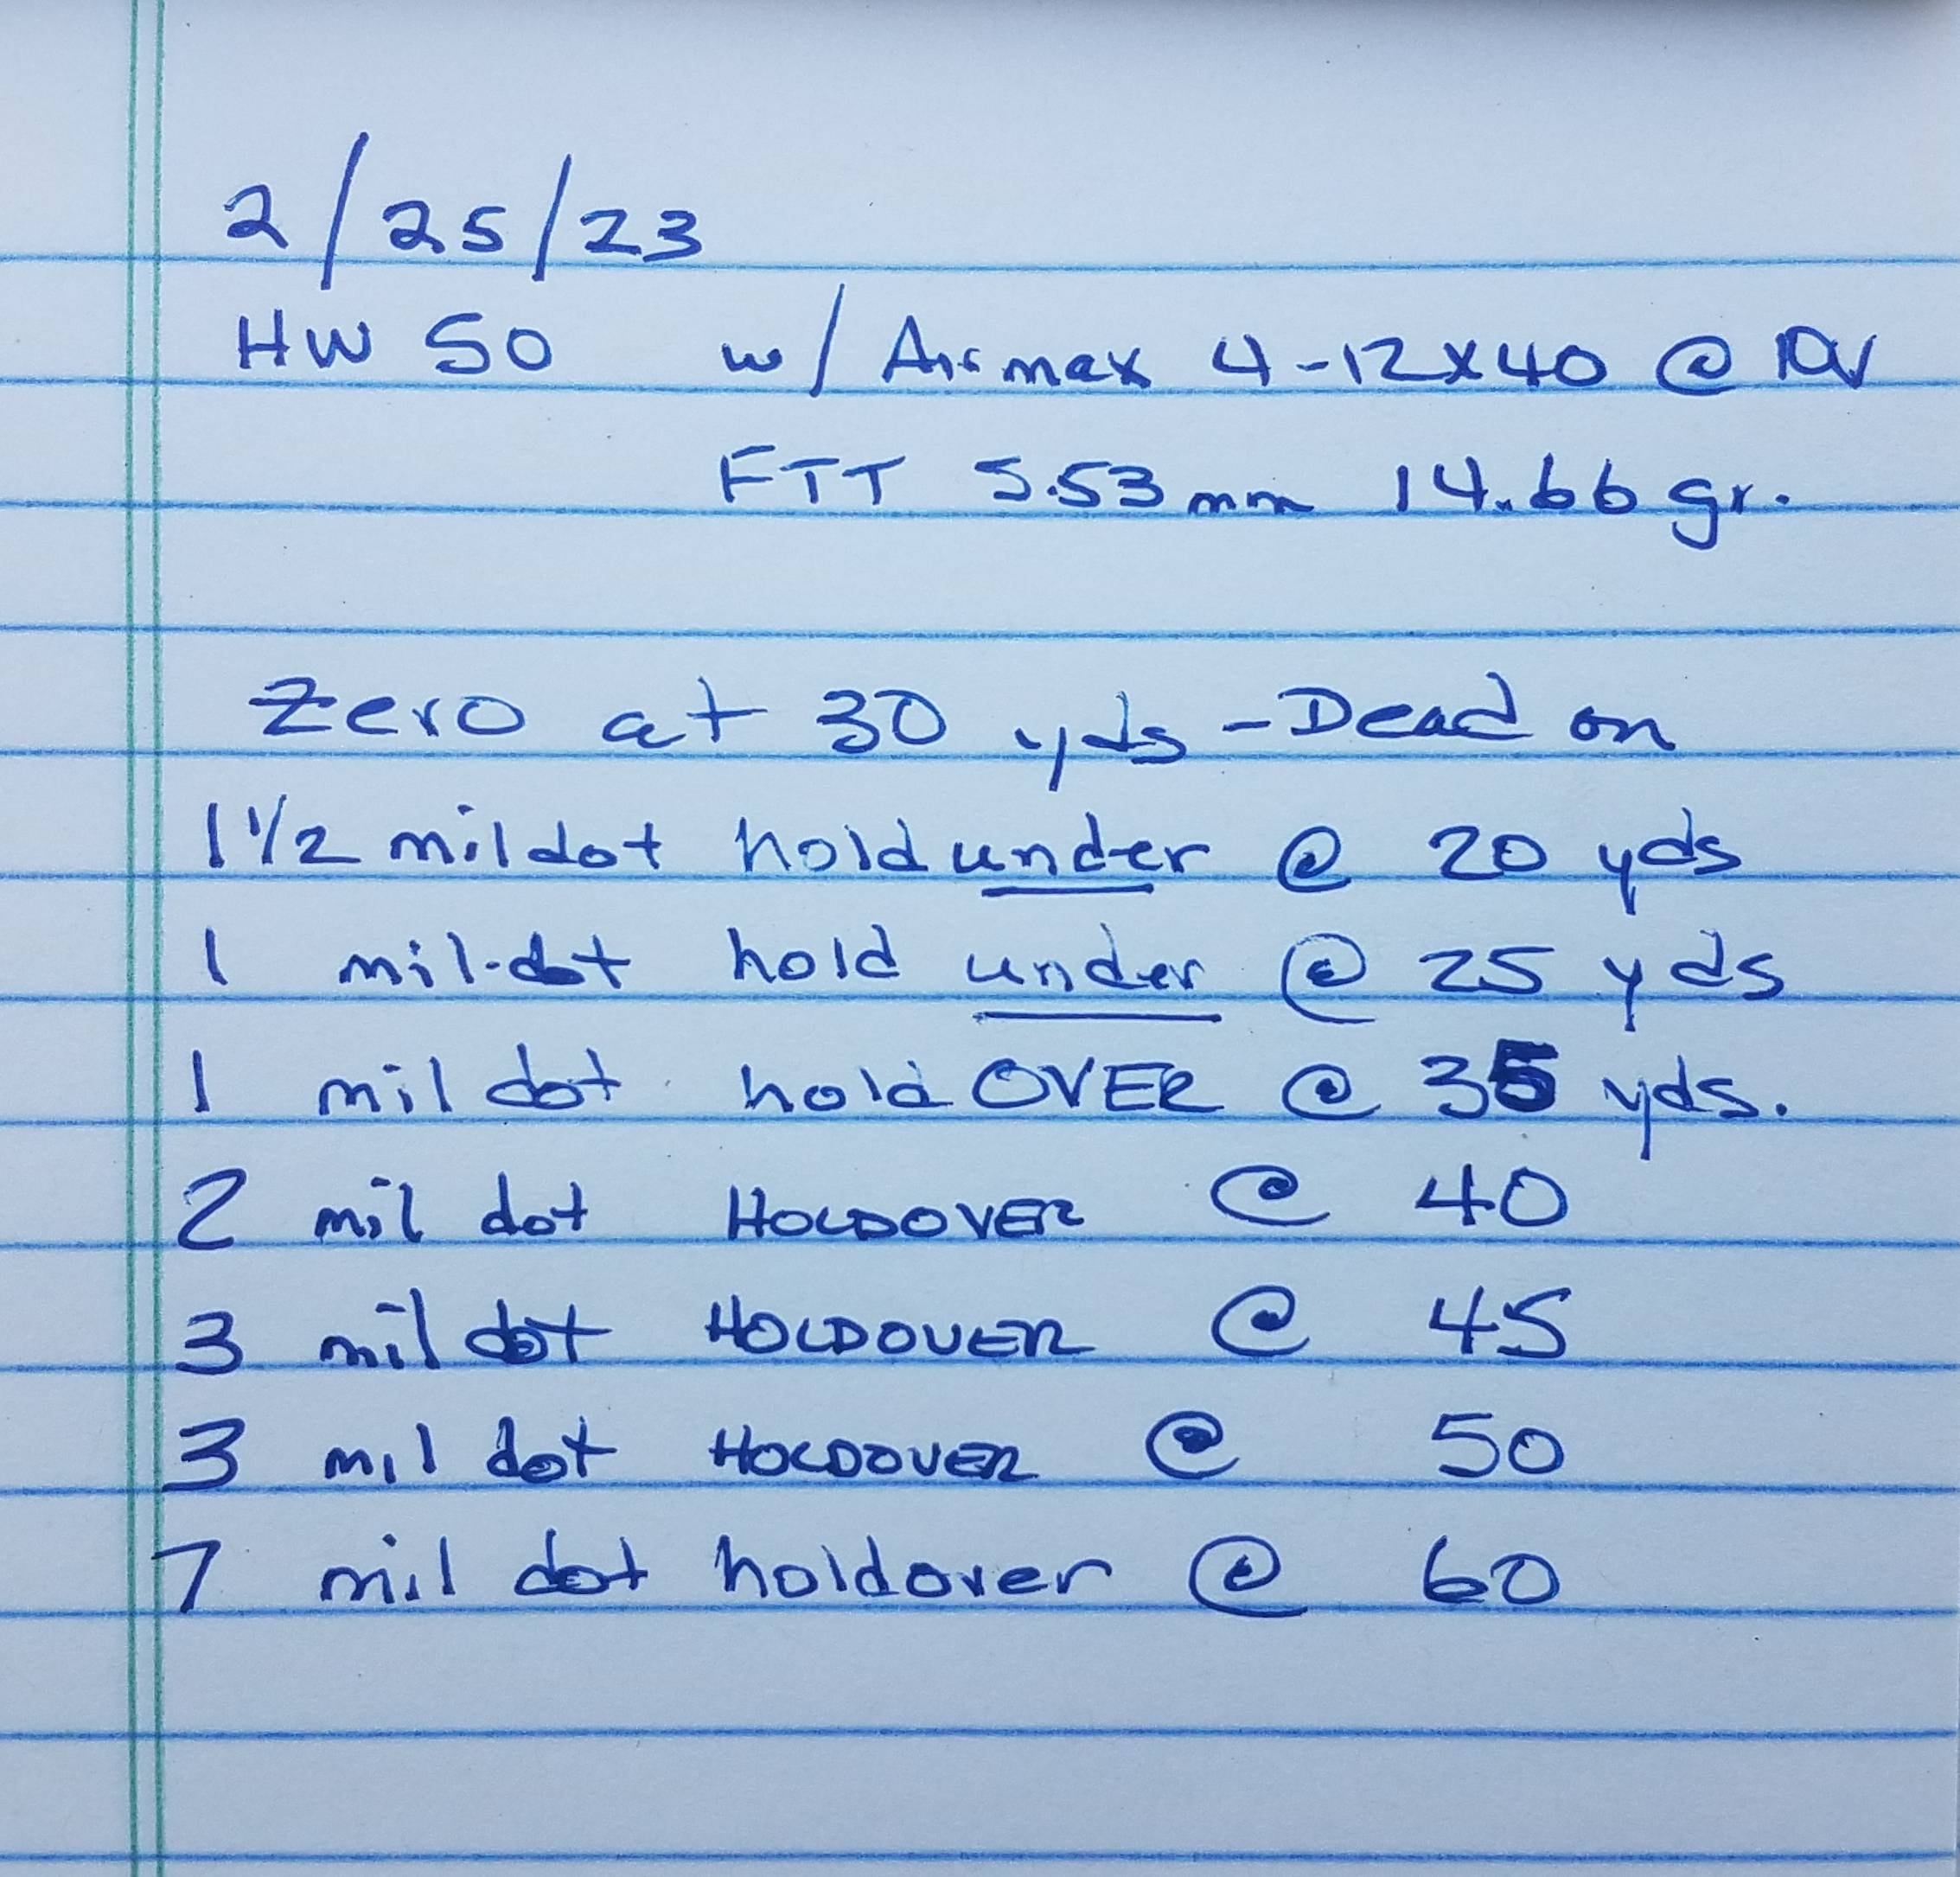 2/25/23
HW 50 w/ Airmax 4-12x40 @ 10x
FTT 5.53mm 14.66 gr.
Zero at 30 yds - Dead on
1 1/2 mildot holdunder @ 20 yds
1 mil-dot hold under @ 25 yds
1 mil dot hold OVER @ 35 yds.
2 mil dot HOLDOVER @ 40
3 mil dot HOLDOVER @ 45
3 mil dot HOLDOVER @ 50
7 mil dot holdover @ 60